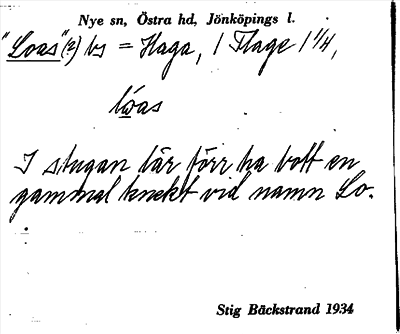 Nye sn, Östra hd, Jönköpings l.
"Loas"(?) bs = Haga, 1 Flage 1 1/4,
lo͞as
I stugan lär förr ha bott en
gammal knekt vid namn Lo.
Stig Bäckstrand 1934